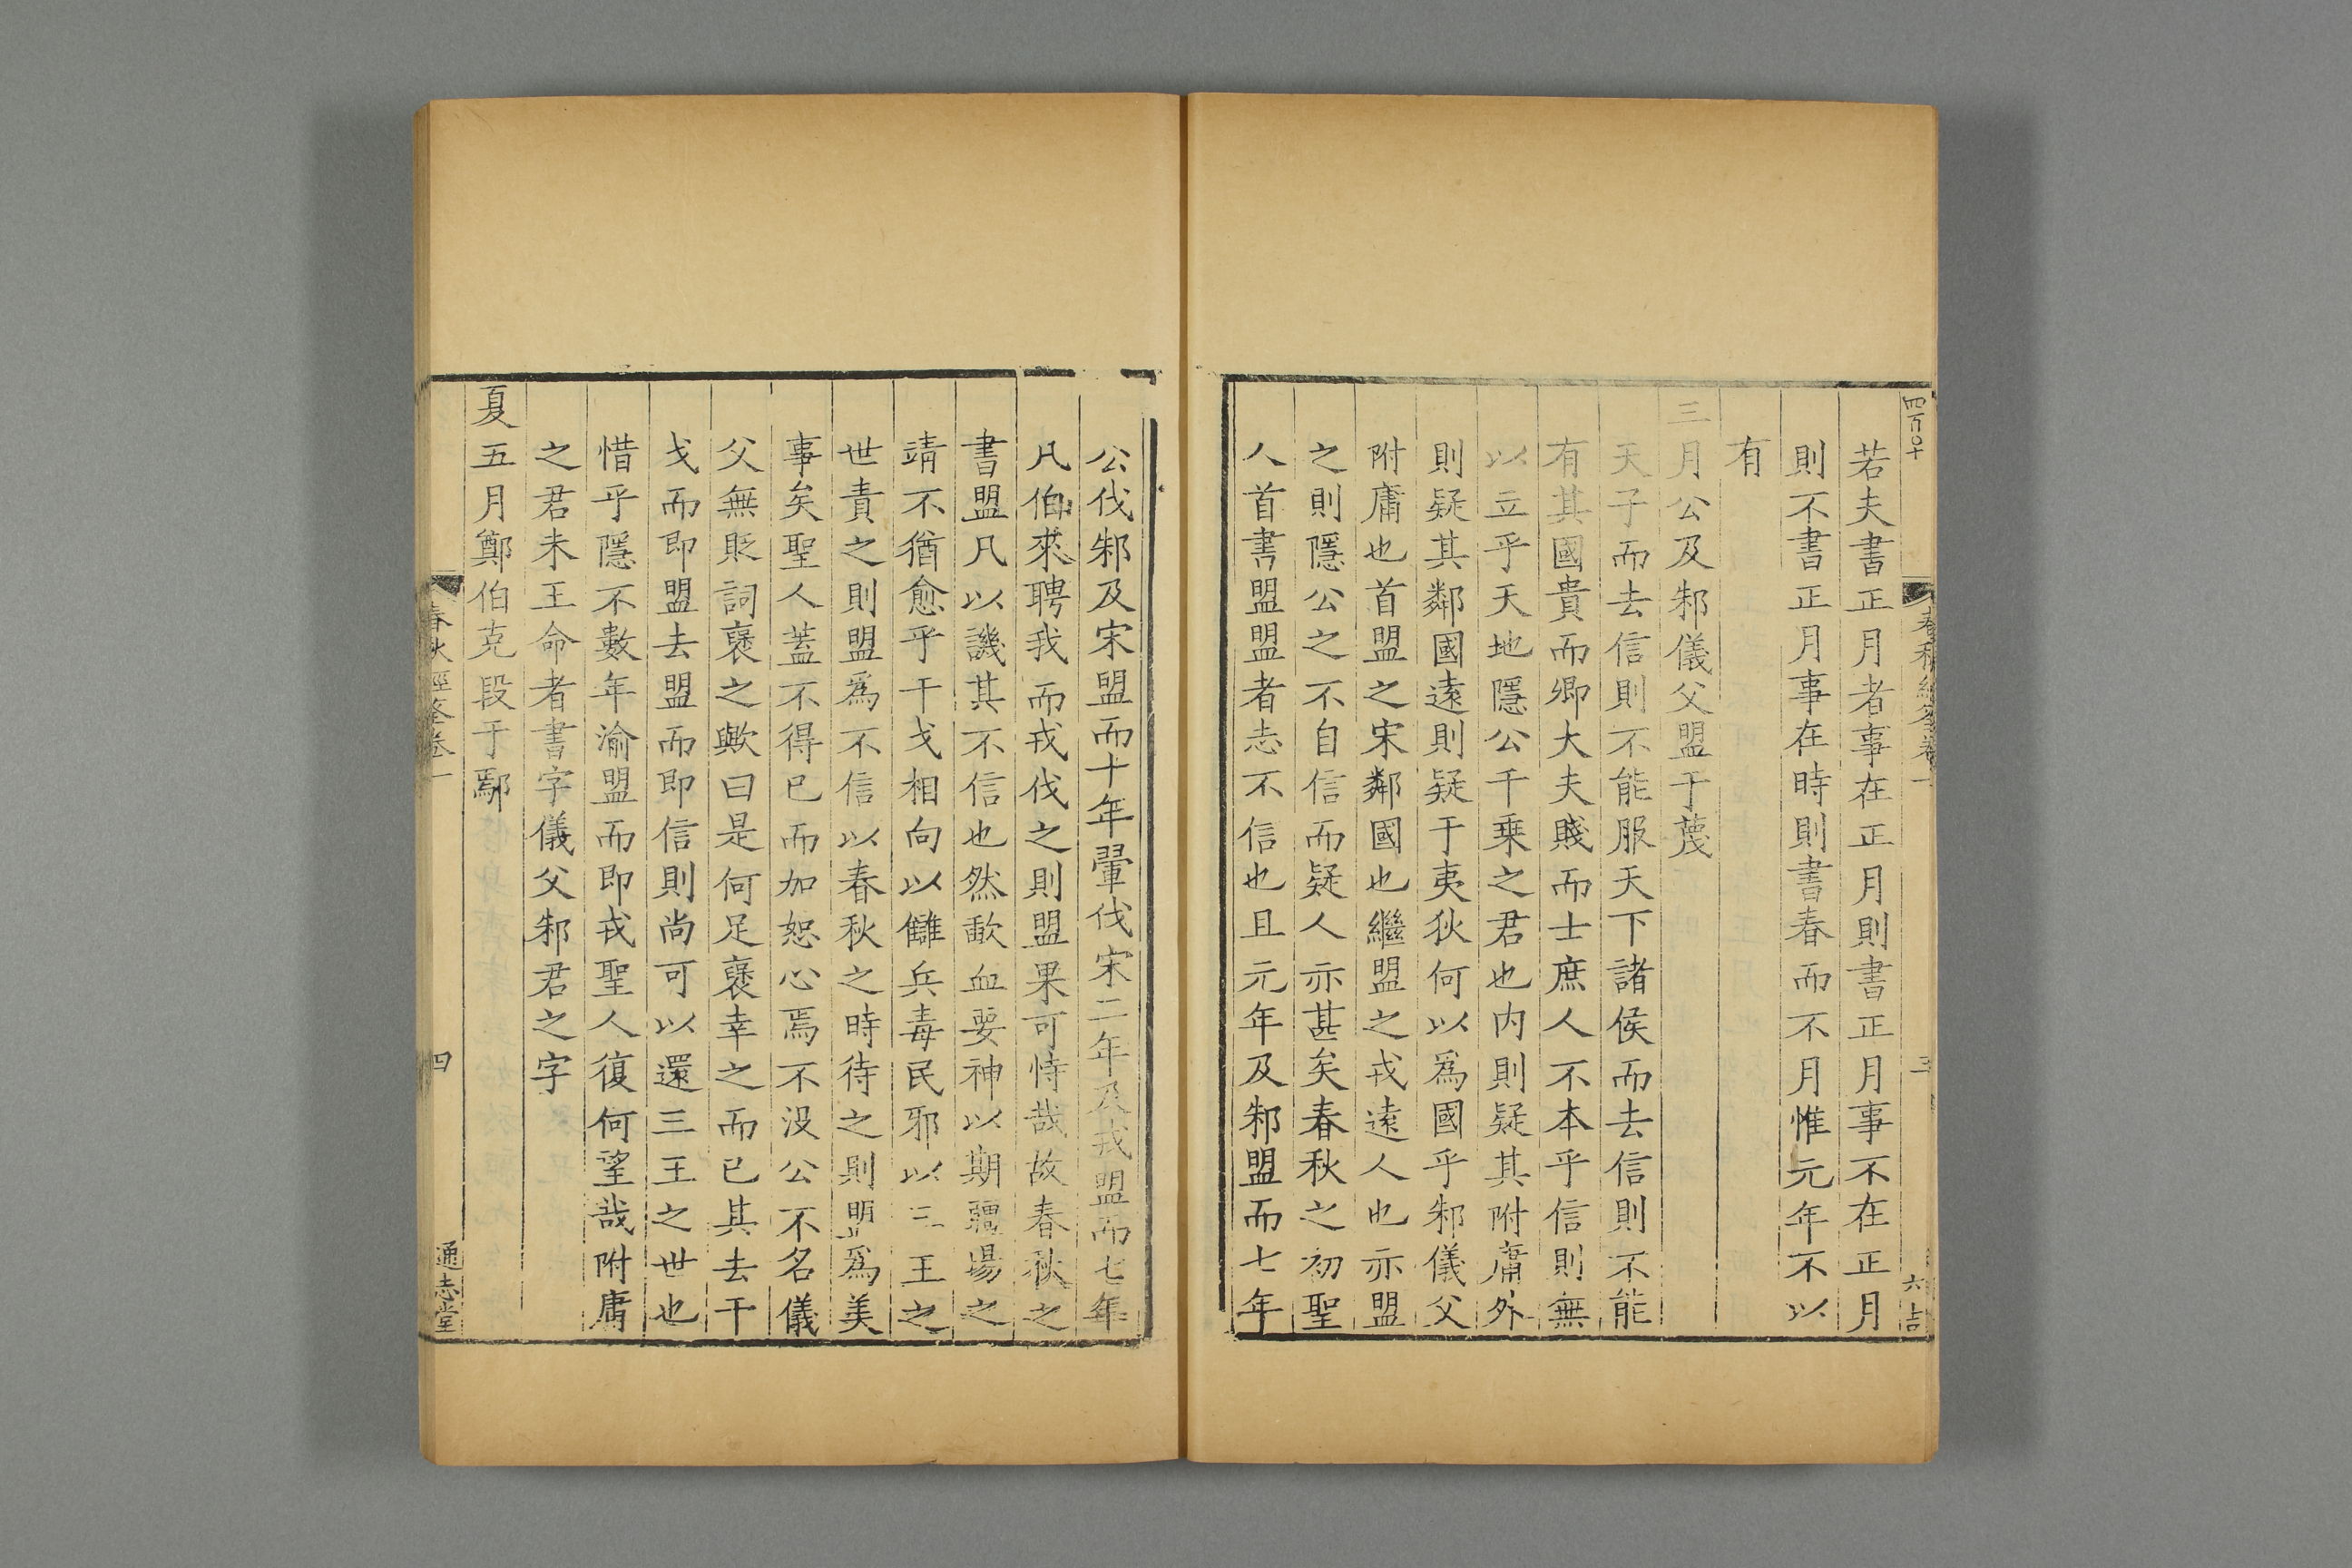 四百〇十
春秋經筌卷一
三
六吉
若夫書正月者事在正月則書正月事不在正月
則不書正月事在時則書春而不月惟元年不以
有
三月公及邾儀父盟于蔑
天子而去信則不能服天下諸侯而去信則不能
有其國貴而卿大夫賤而士庶人不本乎信則無
以立乎天地隱公千乗之君也内則疑其附庸外
則疑其鄰國遠則疑于夷狄何以爲國乎邾儀父
附庸也首盟之宋鄰國也繼盟之戎遠人也亦盟
之則隱公之不自信而疑人亦甚矣春秋之初聖
人首書盟盟者志不信也且元年及邾盟而七年
公伐邾及宋盟而十年翬伐宋二年及戎盟而七年
凡伯來聘我而戎伐之則盟果可恃哉故春秋之
書盟凡以譏其不信也然歃血要神以期疆場之
靖不猶愈乎干戈相向以讎兵毒民邪以三王之
世責之則盟爲不信以春秋之時待之則盟爲美
事矣聖人蓋不得已而加恕心焉不没公不名儀
父無貶詞褒之歟曰是何足褒幸之而已其去干
戈而即盟去盟而即信則尚可以還三王之世也
惜乎隱不數年渝盟而即戎聖人復何望哉附庸
之君未王命者書字儀父邾君之字
夏五月鄭伯克段于鄢
春秋經筌卷一
四
通志堂